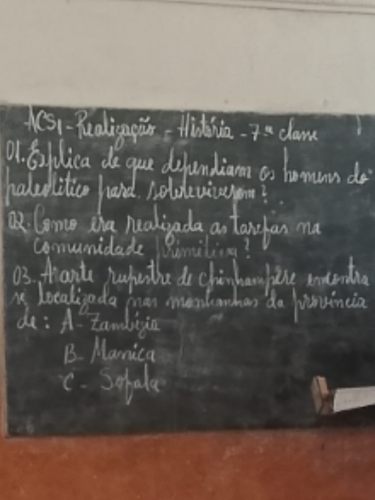 ACS1 - Realização - História - 7ª classe
01. Explica de que dependiam os homens do
paleolítico para sobreviverem?
02. Como era realizada as tarefas na
comunidade primitiva?
03. A arte rupestre de Chinhampere encontra
se localizada nas montanhas da província
de: A - Zambézia
B - Manica
C - Sofala